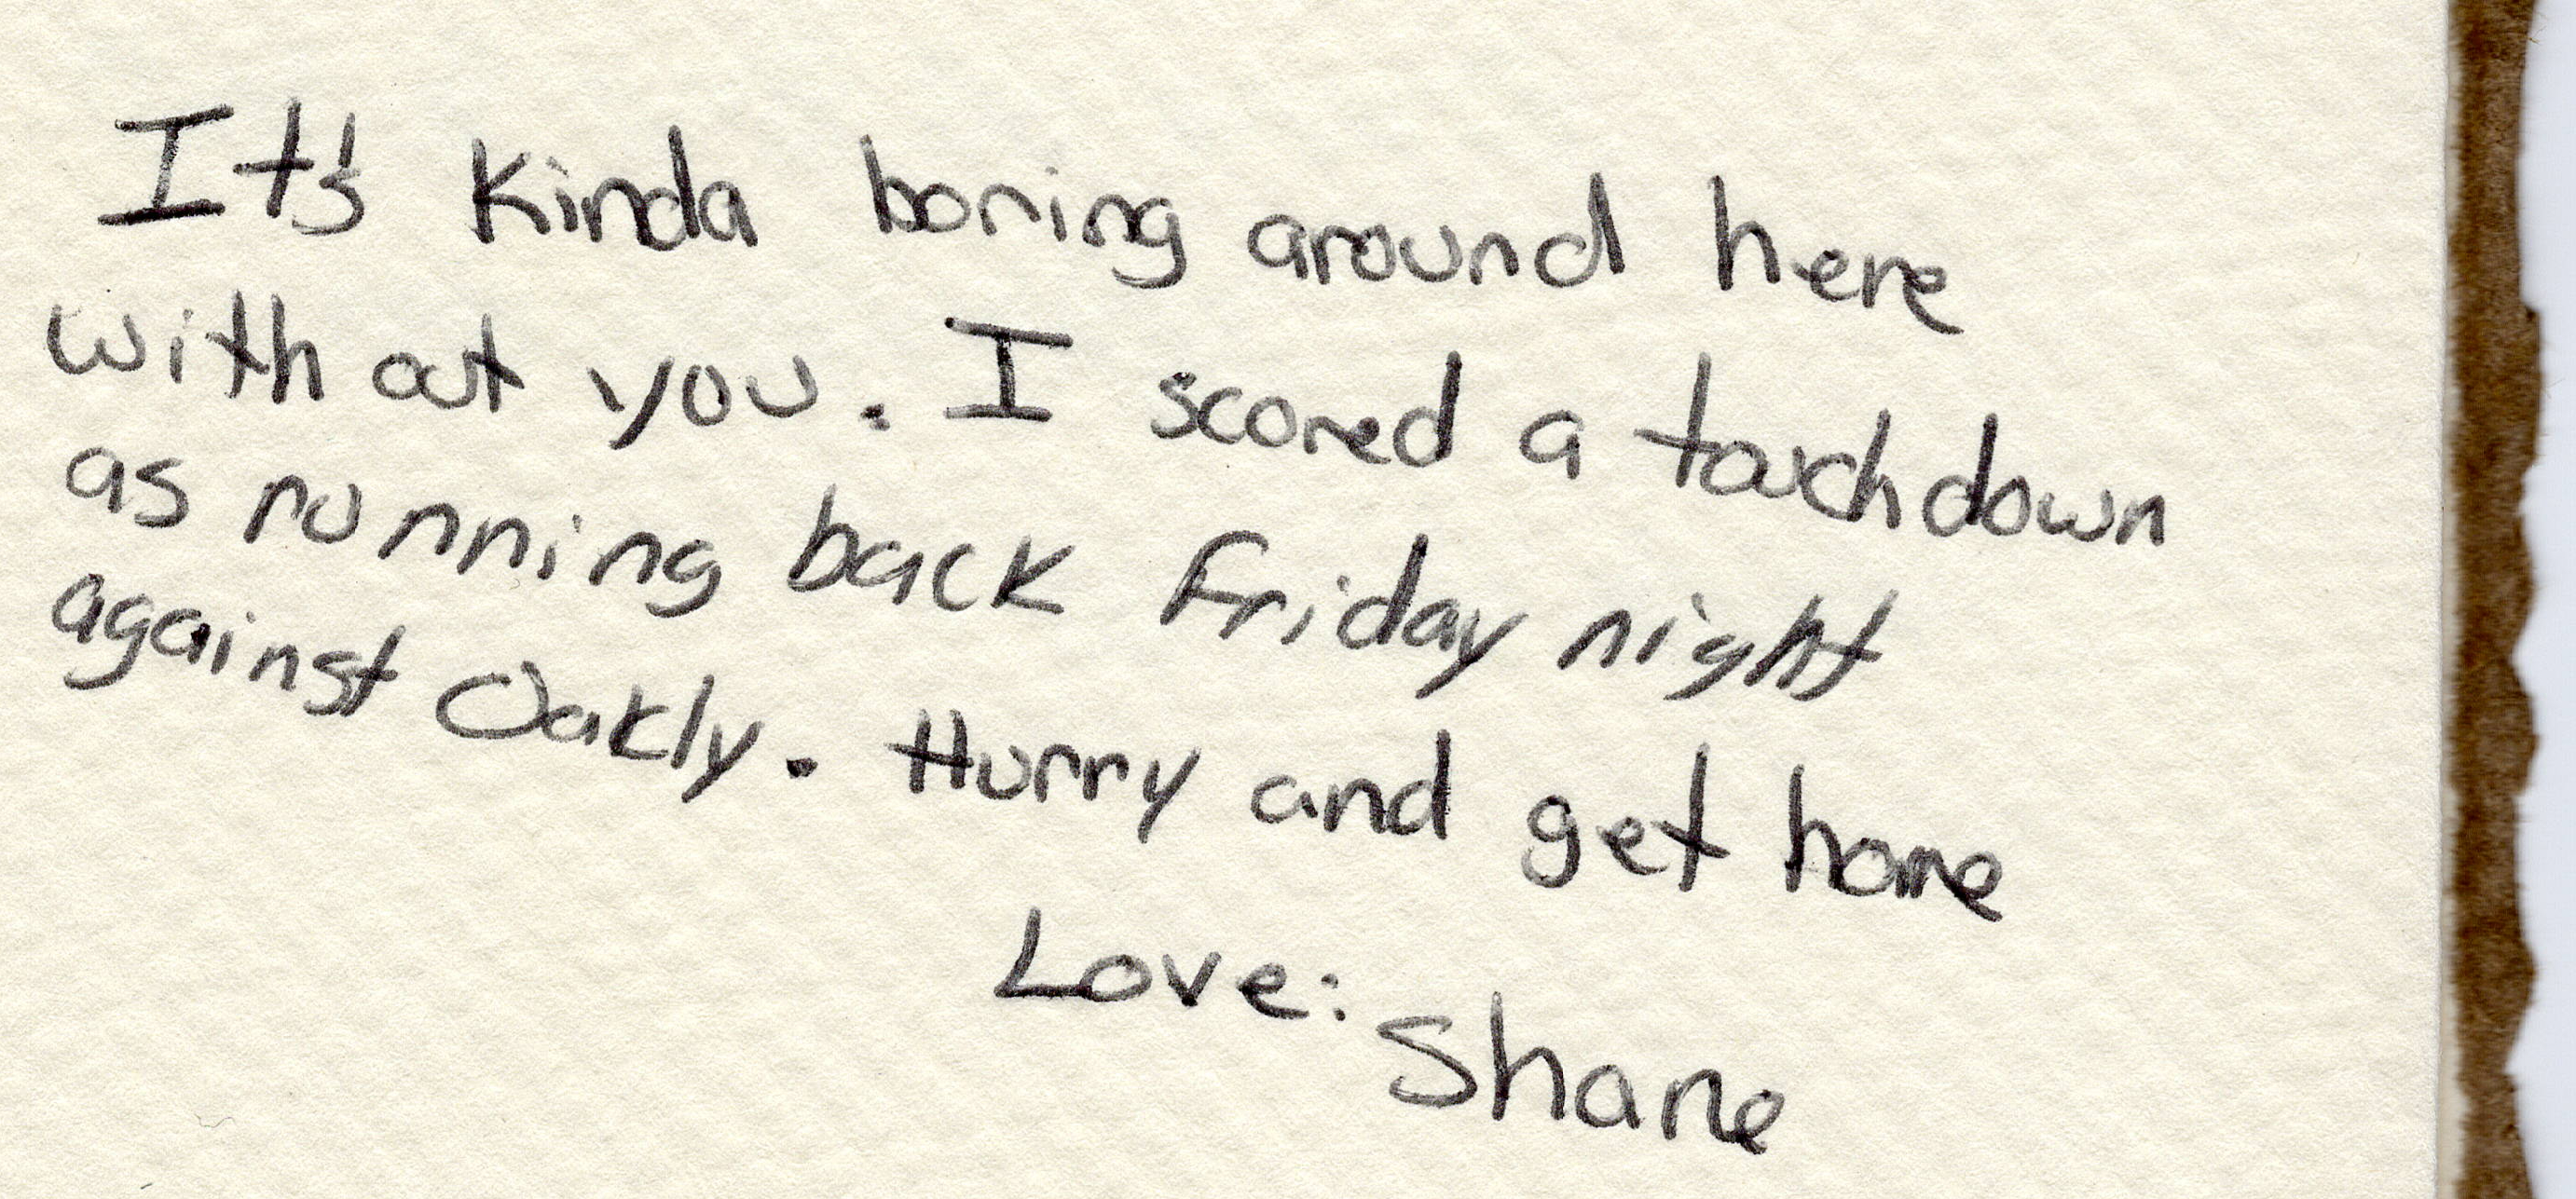 It's kinda boring around here
with out you. I scored a touchdown
as running back Friday night
against Oakly. Hurry and get home
Love:
Shane